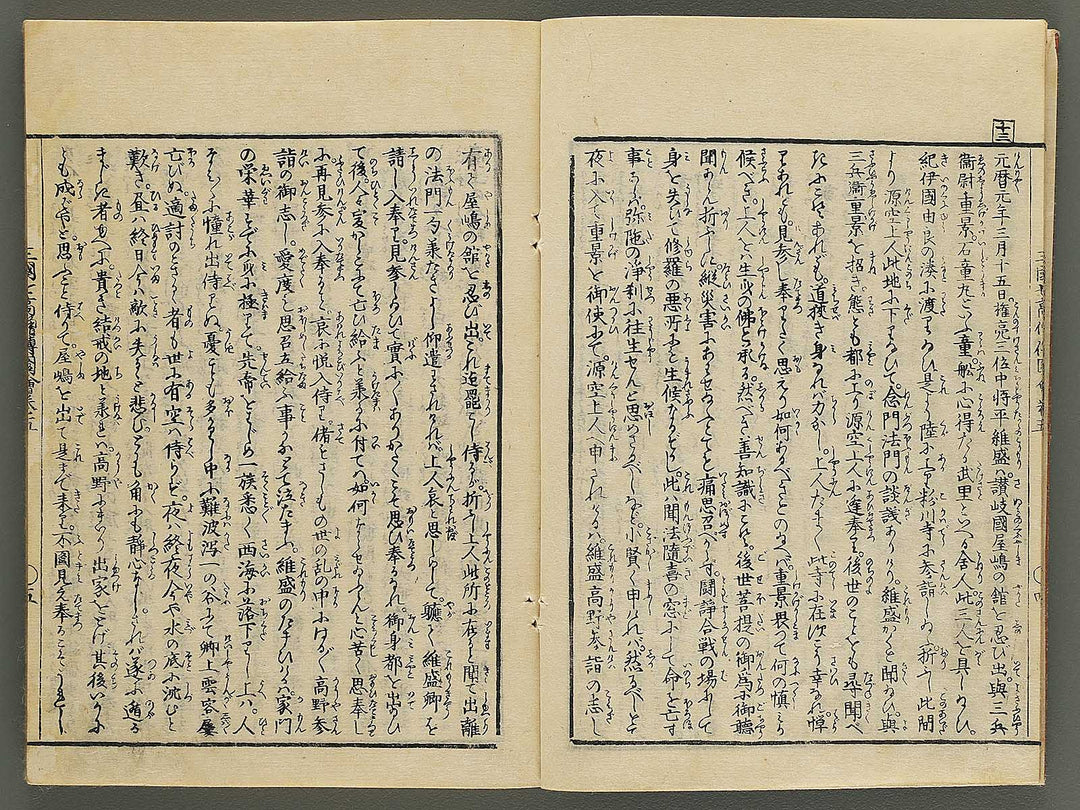 十三
元暦元年三月十五日権亮三位中将平維盛ハ讃岐國屋嶋の舘を忍び出與三兵
衞尉重景石童丸といふ童舩に心得たる武里といへる舎人此三人を具し給ひ
紀伊國由良の湊に渡り給ひ是より陸に下り粉川寺に参詣し給ふ折ふし此間
より源空上人此地に下り給ひて念門法門の談義ありけり維盛かくと聞給ひ與
三兵衞重景を招き態とも都に上り源空上人に逢奉り後世のことをも尋聞べ
きにこそあれども道狭き身なれバ力なし上人たま〳〵此寺に在すこそ幸なれ憚
りあれども見参し奉りたく思ふ如何あるべきとのたまへバ重景畏て何の慎か
候べき上人ハ生身の佛と承る然べき善知識にこそ後世菩提の御為に御聽
聞あらん折ふしに縦災害にあハせ給ふとても痛思召べからず闘諍合戦の場にして
身を失ひて修羅の悪所にこそ生候なるべし此ハ聞法隨喜の窓にして命を亡す
事あらバ弥陀の浄刹に往生せんと思めさるべしなど小賢く申けれバ然べしとて
夜に入て重景を御使にて源空上人へ申されけるハ維盛高野参詣の志し
有て屋嶋の舘を忍び出これ迄罷り侍るが折ふし上人此所に在すと聞て出離
の法門一句承たきよし仰遣されけれバ上人哀と思しめして軈て維盛卿を
請し入奉り見参し給ひて實に〳〵ありがたくこそ思ひ奉れ御身都を出給ひ
て後人々変りはてゝ亡び給ふと承るに付てハ如何ならせ給ふらんと心苦く思奉し
に再見参に入奉ること哀に悦入侍り偖もさしもの世の乱の中にはる〴〵高野参
詣の御志し愛度こそ思召立給ふ事かなとて泣たまふ維盛のたまひけるハ家門
の栄華すでに身に極りて先帝をはじめ一族悉く西海に落下りし上ハ人
なみ〳〵に憧れ出侍りぬ憂こと多き中に難波泻一の谷にて卿上雲容屋
亡びぬ適討のこさるゝ者も世に有空ハ侍らず夜ハ終夜今や水の底に沈むと
歎き昼ハ終日今や敵に失るゝと悲びとも角にも静心なしされバ遂に遁る
まじき者ゆへに貴き結戒の地と承れバ高野にまゐり出家をとげ其後いかに
とも成ばやと思ふたち侍りて屋嶋を出て是まで来り不圖見え奉ることこそうれし